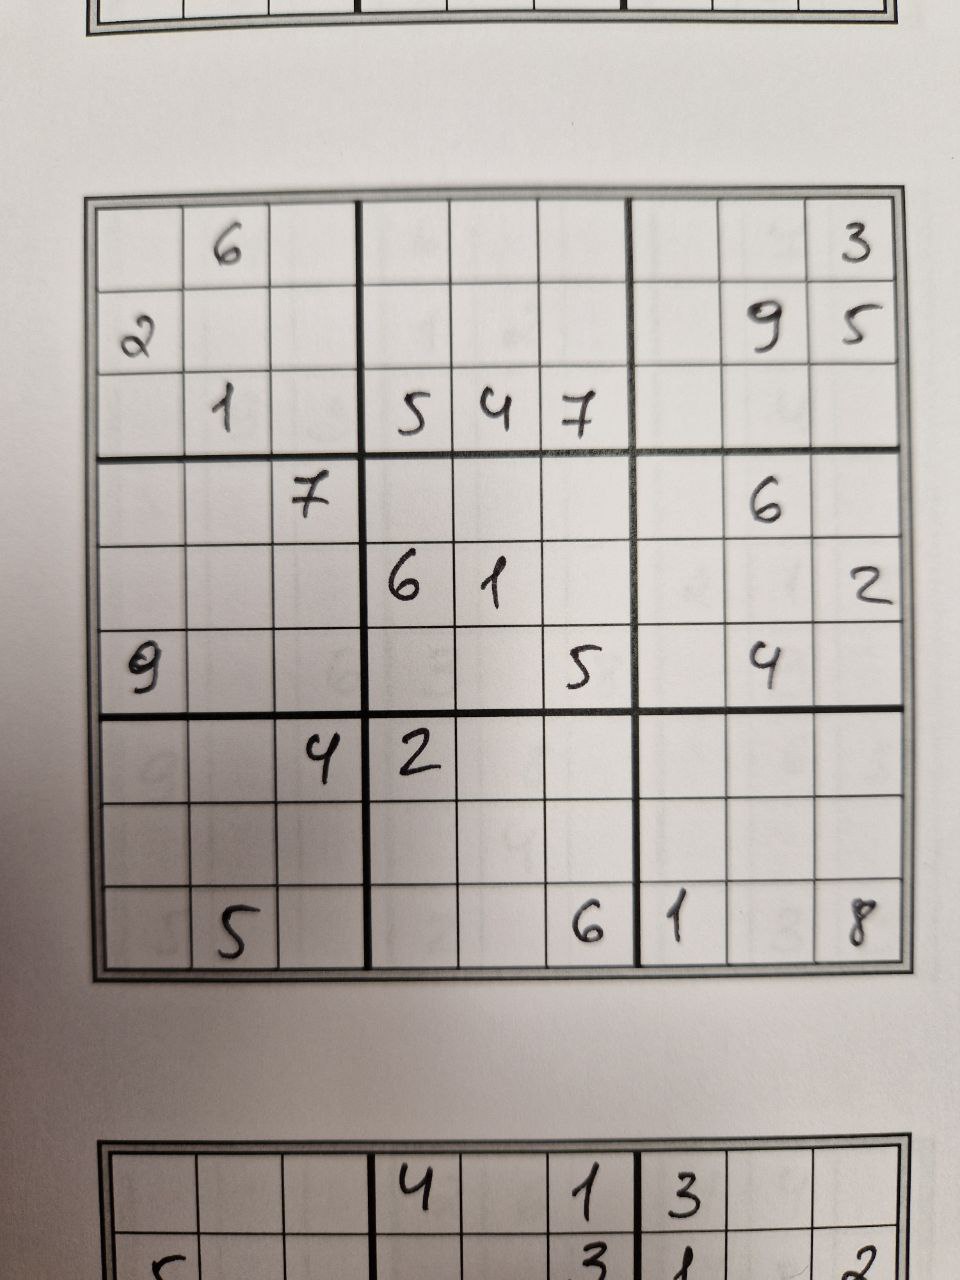 6 3
2 9 5
1 5 4 7
7 6
6 1 2
9 5 4
4 2
5 6 1 8
4 1 3
5 3 1 2